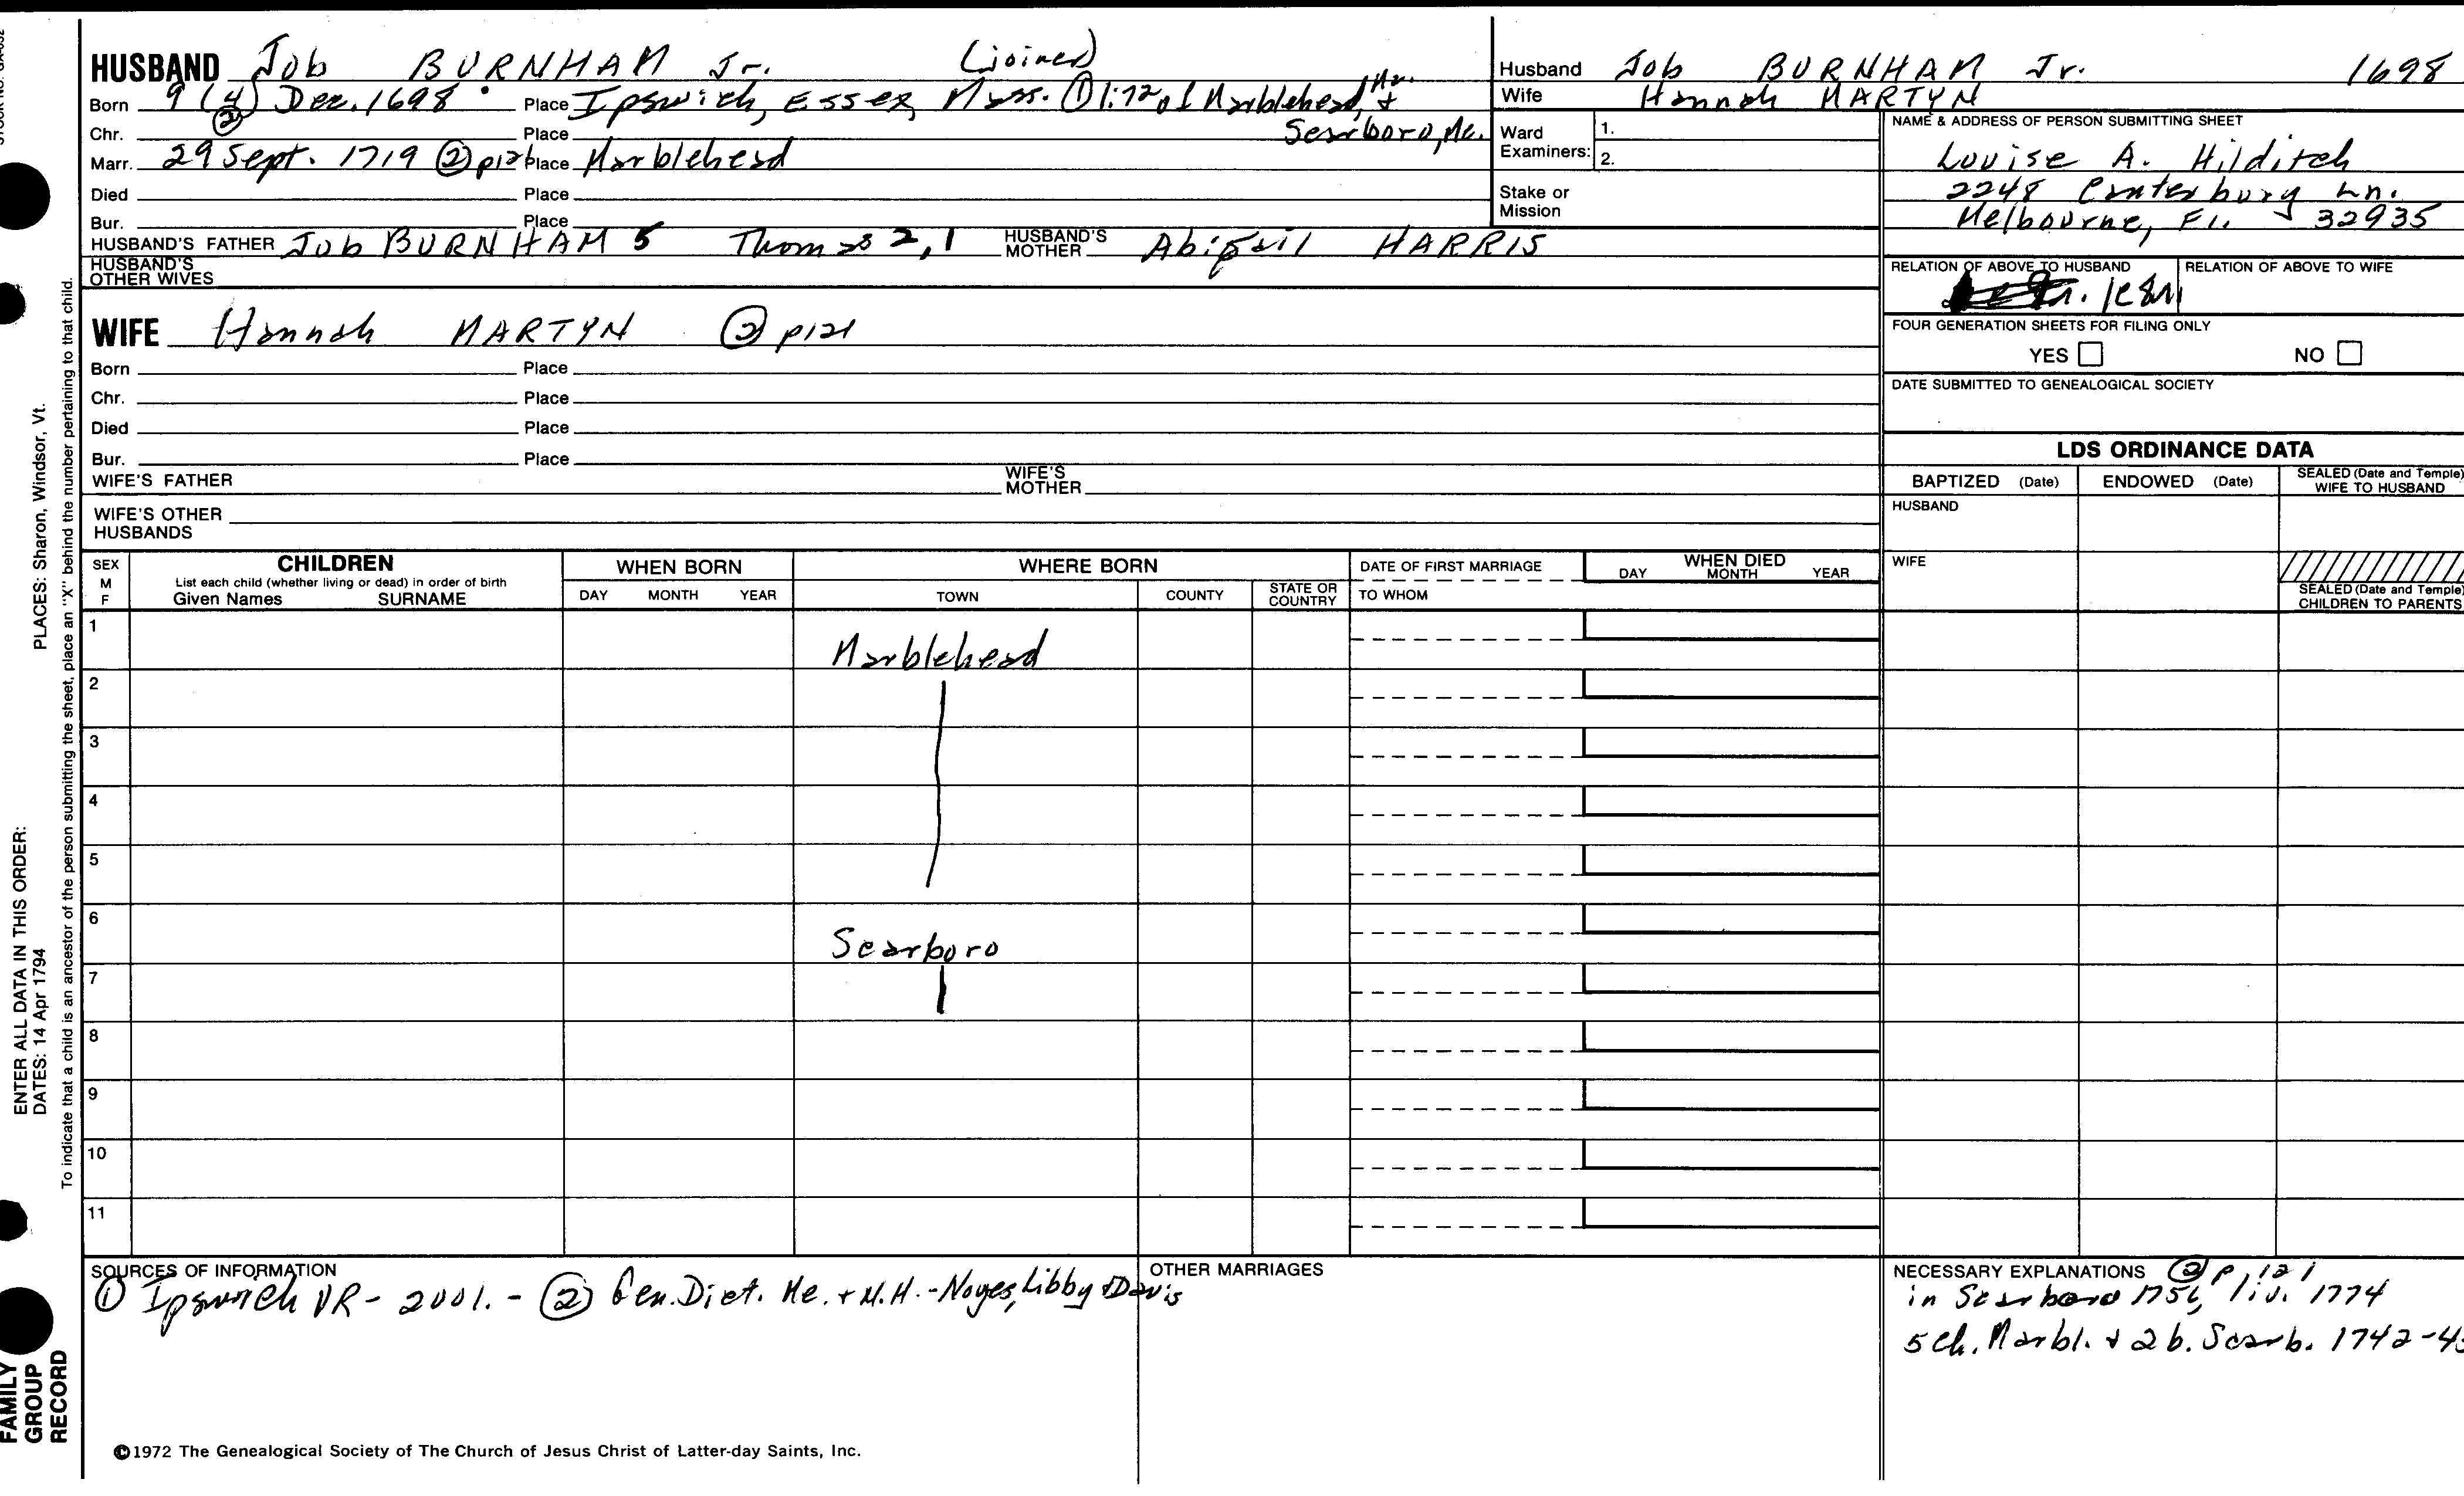 HUSBAND Job BURNHAM Jr. (joiner)
Born 9 (4) Dec. 1698 Place Ipswich, Essex, Mass. ① 1:72 of Marblehead, Ma. &
②
Chr. Place Scarboro, Me.
Marr. 29 Sept. 1719 ② p121 Place Marblehead
Died Place
Bur. Place
HUSBAND'S FATHER Job BURNHAM 5 Thomas 2,1 HUSBAND'S MOTHER Abigail HARRIS
HUSBAND'S OTHER WIVES
WIFE Hannah MARTYN ② p121
Born Place
Chr. Place
Died Place
Bur. Place
WIFE'S FATHER WIFE'S MOTHER
WIFE'S OTHER HUSBANDS
Husband Job BURNHAM Jr. 1698
Wife Hannah MARTYN
Ward Examiners: 1.
2.
Stake or Mission
NAME & ADDRESS OF PERSON SUBMITTING SHEET
Louise A. Hilditch
2248 Canterbury Ln.
Melbourne, Fl. 32935
RELATION OF ABOVE TO HUSBAND RELATION OF ABOVE TO WIFE
FOUR GENERATION SHEETS FOR FILING ONLY
YES NO
DATE SUBMITTED TO GENEALOGICAL SOCIETY
LDS ORDINANCE DATA
BAPTIZED (Date) ENDOWED (Date) SEALED (Date and Temple) WIFE TO HUSBAND
HUSBAND
WIFE
SEALED (Date and Temple) CHILDREN TO PARENTS
SEX M F
CHILDREN
List each child (whether living or dead) in order of birth
Given Names SURNAME
WHEN BORN
DAY MONTH YEAR
WHERE BORN
TOWN COUNTY STATE OR COUNTRY
DATE OF FIRST MARRIAGE
TO WHOM
WHEN DIED
DAY MONTH YEAR
1 Marblehead
2
3
4
5
6 Scarboro
7
8
9
10
11
SOURCES OF INFORMATION
① Ipswich VR - 2001. - ② Gen. Dict. Me. + N.H. - Noyes, Libby & Davis
OTHER MARRIAGES
NECESSARY EXPLANATIONS ② p 121
in Scarboro 1756, liv. 1774
5 ch. Marbl. & 2 b. Scarb. 1742-
©1972 The Genealogical Society of The Church of Jesus Christ of Latter-day Saints, Inc.
ENTER ALL DATA IN THIS ORDER:
DATES: 14 Apr 1794 PLACES: Sharon, Windsor, Vt.
To indicate that a child is an ancestor of the person submitting the sheet, place an "X" behind the number pertaining to that child.
FAMILY
GROUP
RECORD